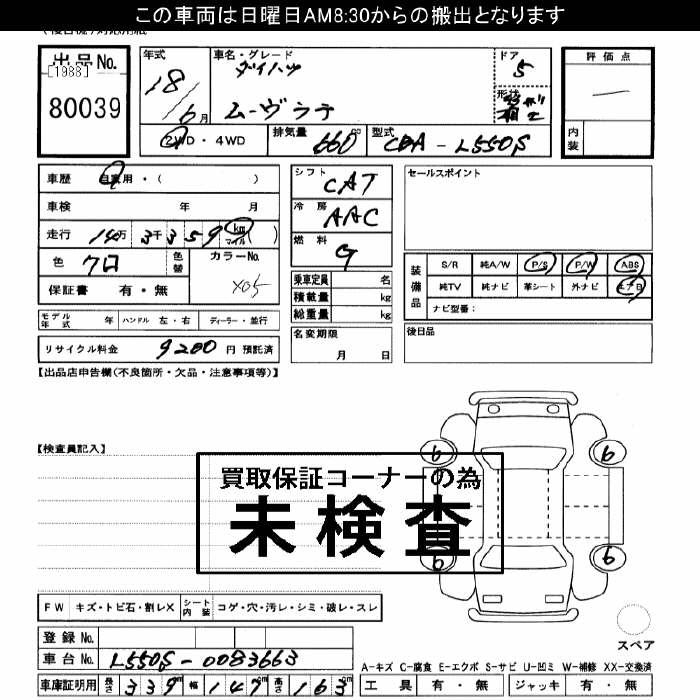 この車両は日曜日AM8:30からの搬出となります
出品No.
[1988]
80039
年式
18/6月
車名・グレード
ダイハツ
ムーヴラテ
ドア
5
形状
評価点
内装
2WD・4WD
排気量 660 cc
型式 CBA-L550S
車歴 自家用・( )
車検 年 月
走行 14万3千359 km マイル ( )
色 クロ
色替
カラーNo.
X05
保証書 有・無
シフト
CAT
冷房
AAC
燃料
G
乗車定員 名
積載量 kg
総重量 kg
セールスポイント
装備品
S/R 純A/W P/S P/W ABS
純TV 純ナビ 革シート 外ナビ エアB
ナビ型番:
モデル年式 年 ハンドル 左・右 ディーラー・並行
名変期限
月 日
後日品
リサイクル料金 9200 円 預託済
【出品店申告欄(不良箇所・欠品・注意事項等)】
【検査員記入】
買取保証コーナーの為
未検査
6
6
6
6
FW キズ・トビ石・割レX シート内装 コゲ・穴・汚レ・シミ・破レ・スレ
スペア
登録No.
車台No. L550S-0083663
A-キズ C-腐食 E-エクボ S-サビ U-凹ミ W-補修 XX-交換済
車庫証明用 長さ 339cm 幅 147cm 高さ 163cm
工具 有・無 ジャッキ 有・無